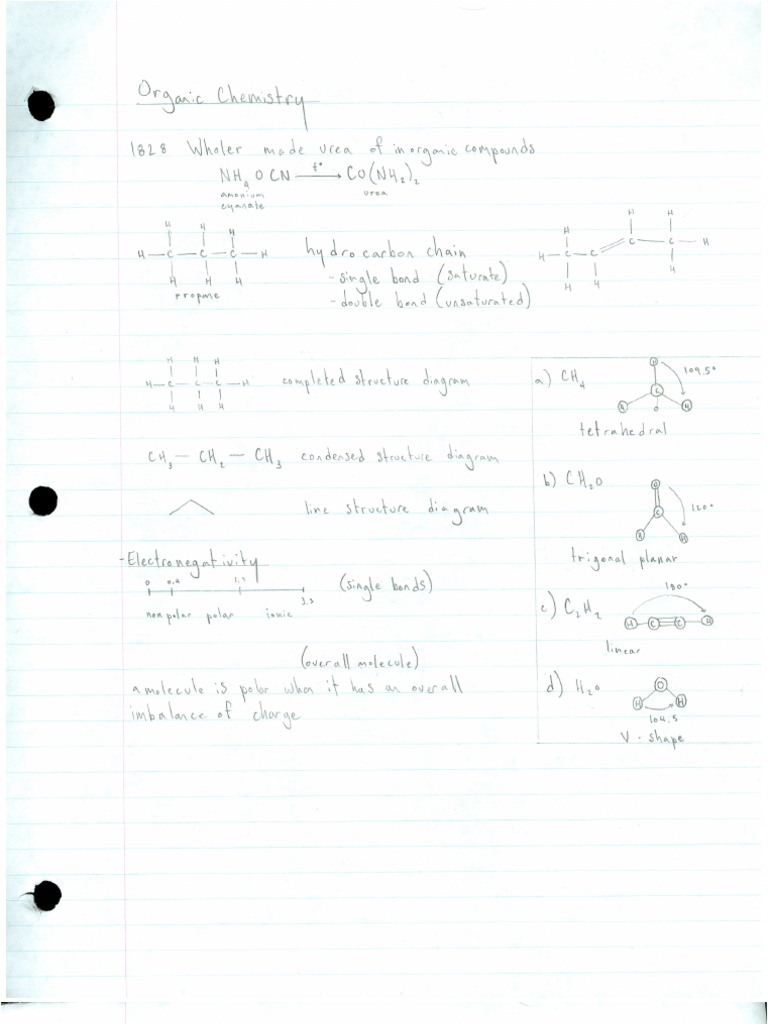 Organic Chemistry
1828 Wholer made urea of inorganic compounds
NH₄OCN —t°→ CO(NH₂)₂
amonium
cyanate
urea
H H H
H — C — C — C — H
H H H
propane
hydrocarbon chain
- single bond (saturate)
- double bond (unsaturated)
H H H
H — C — C = C — C — H
H H H
H H H
H — C — C — C — H
H H H
completed structure diagram
CH₃ — CH₂ — CH₃ condensed structure diagram
line structure diagram
- Electronegativity
0 0.4 1.7 3.3
(single bonds)
nonpolar polar ionic
(overall molecule)
a molecule is polar when it has an overall
imbalance of charge
a) CH₄
H
109.5°
C
H H
tetrahedral
b) CH₂O
O
C
120°
H H
trigonal planar
c) C₂H₂
180°
H — C ≡ C — H
linear
d) H₂O
O
H H
104.5
V - shape